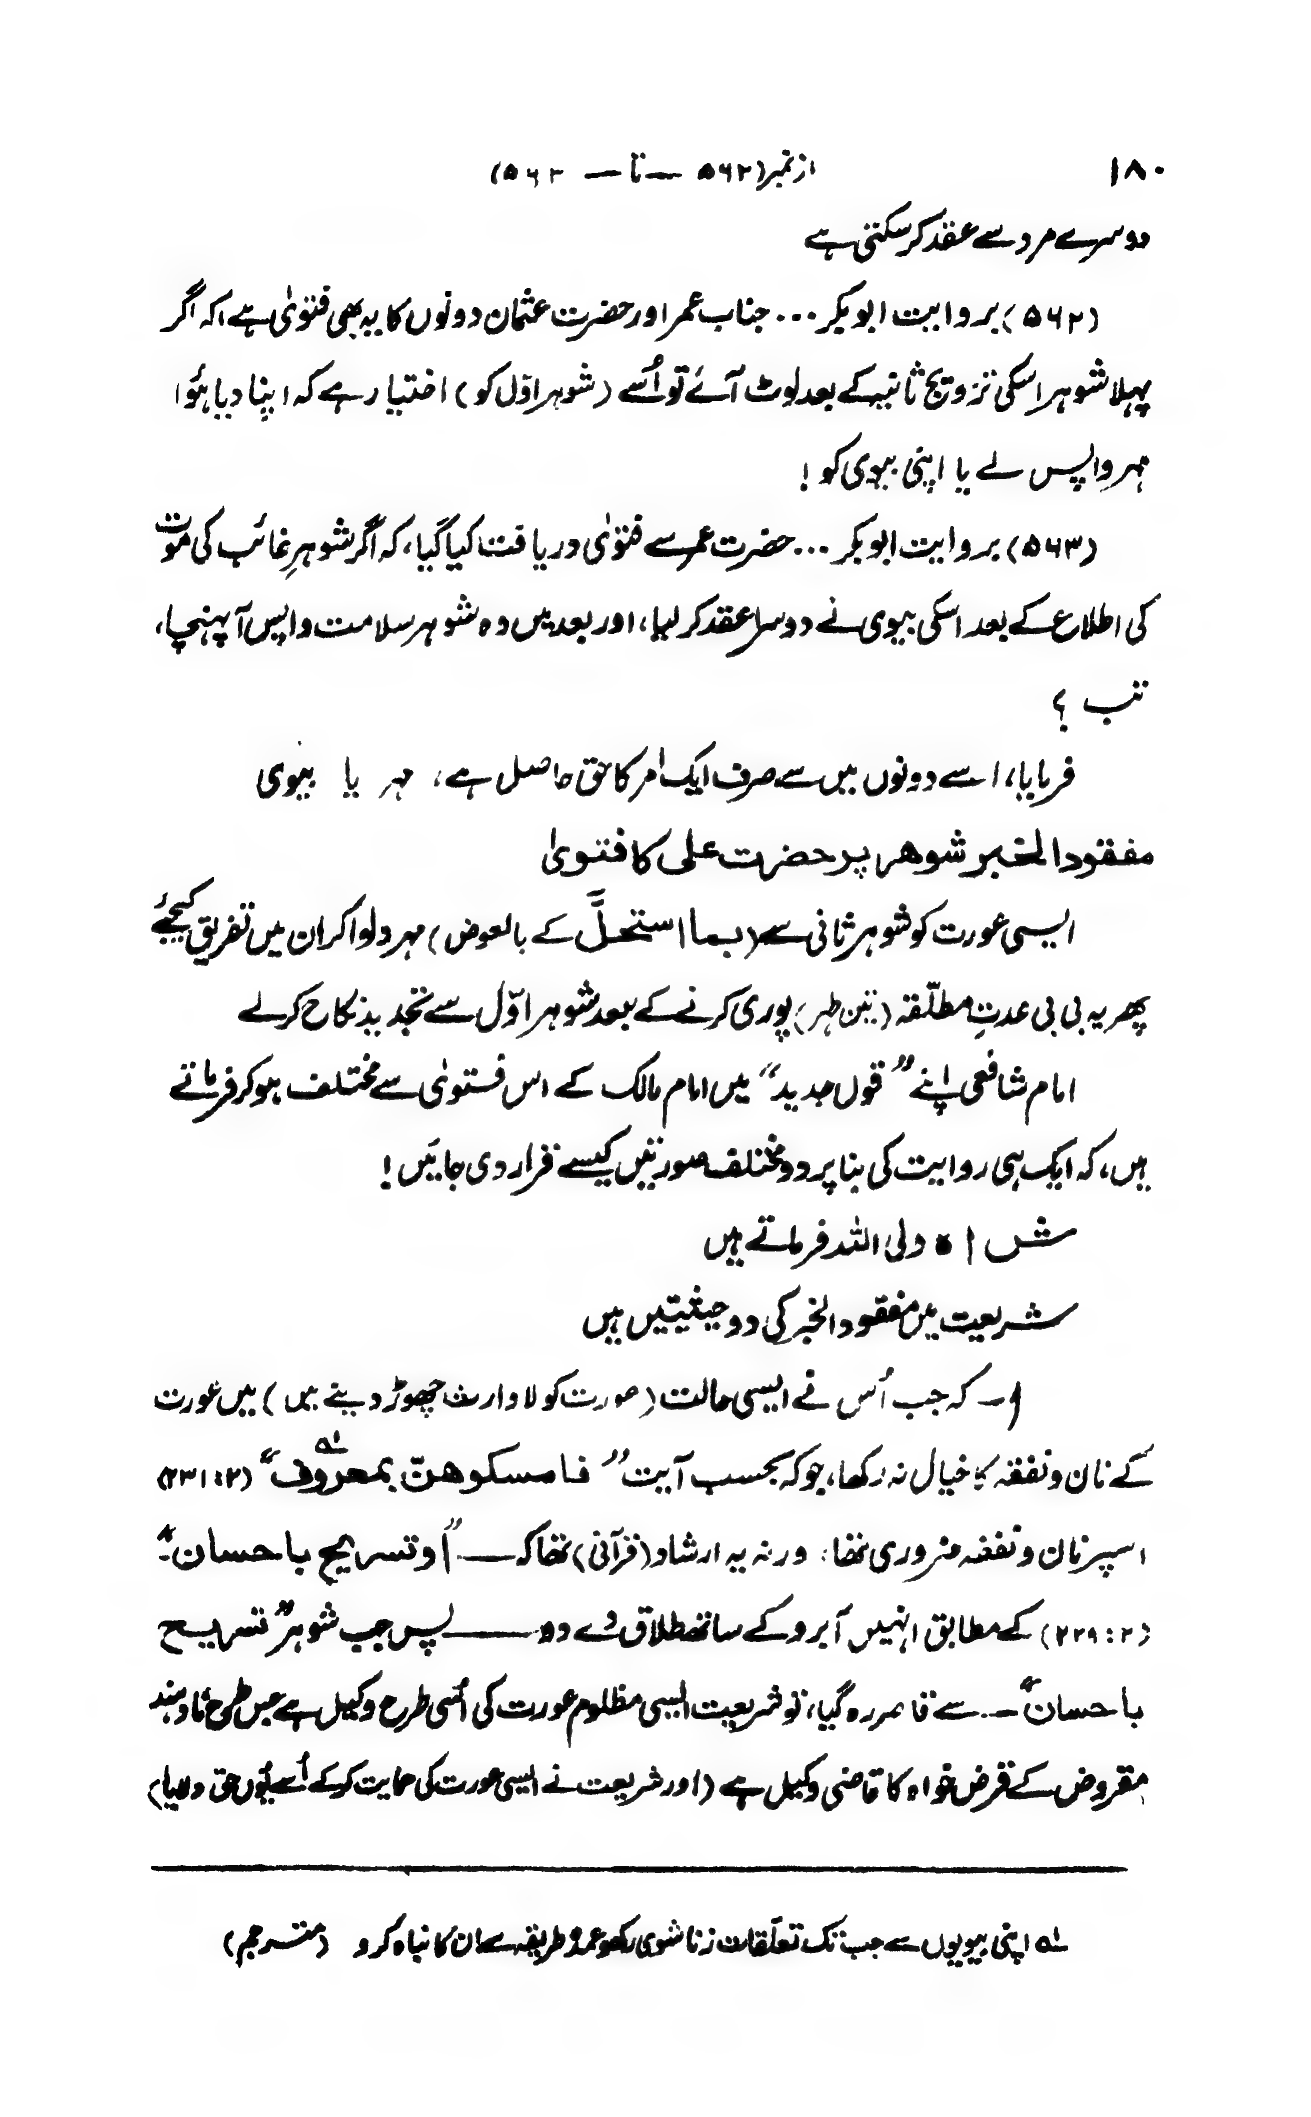 ۱۸۰ از نمبر (۵۶۲ — تا — ۵۶۳)
دوسرے مرد سے عقد کر سکتی ہے
(۵۶۲) بروایت ابوبکر ... جناب عمر اور حضرت عثمان دونوں کا یہ بھی فتویٰ ہے، کہ اگر
پہلا شوہر اسکی تزویج ثانیہ کے بعد لوٹ آئے تو اُسے (شوہر اوّل کو) اختیار ہے کہ اپنا دیا ہؤا
مہر واپس لے یا اپنی بیوی کو !
(۵۶۳) بروایت ابوبکر ... حضرت عمر سے فتوٰی دریافت کیا گیا، کہ اگر شوہرِ غائب کی موت
کی اطلاع کے بعد اسکی بیوی نے دوسرا عقد کر لیا، اور بعد میں وہ شوہر سلامت واپس آ پہنچا،
تب ؟
فرمایا، اسے دونوں میں سے صرف ایک امر کا حق حاصل ہے، مہر یا بیوی
مفقود الخبر شوھر پر حضرت علی کا فتویٰ
ایسی عورت کو شوہر ثانی سے (بما استحلَّ کے بالعوض) مہر دلوا کر ان میں تفریق کیجئے
پھر یہ بی بی عدتِ مطلّقہ (تین طہر) پوری کرنے کے بعد شوہر اوّل سے تجدید نکاح کر لے
امام شافعی اپنے ”قول جدید“ میں امام مالک کے اس فتویٰ سے مختلف ہو کر فرماتے
ہیں، کہ ایک ہی روایت کی بنا پر دو مختلف صورتیں کیسے قرار دی جائیں !
شاہ ولی اللہ فرماتے ہیں
شریعت میں مفقود الخبر کی دو حیثیتیں ہیں
و۔ کہ جب اُس نے ایسی حالت (عورت کو لاوارث چھوڑ دینے میں) میں عورت
کے نان و نفقہ کا خیال نہ رکھا، جو کہ بحسب آیت ”فامسکوھنّ بمعروف“ ؎۱ (۲۳۱:۲)
اسپر نان و نفقہ ضروری تھا، ورنہ یہ ارشاد (قرآنی) تھا کہ — ”او تسریح باحسان“۔
(۲۲۹:۲) کے مطابق انہیں آبرو کے ساتھ طلاق دے دو — پس جب شوہر ”تسریح
باحسان“ — سے قاصر رہ گیا، تو شریعت ایسی مظلوم عورت کی اُسی طرح وکیل ہے جس طرح نادہند
مقروض کے قرض خواہ کا قاضی وکیل ہے (اور شریعت نے ایسی عورت کی حمایت کر کے اُسے یُوں حق دلایا)
؎۱ اپنی بیویوں سے جب تک تعلّقات زناشوی رکھو عمدہ طریقہ سے ان کا نباہ کرو (مترجم)